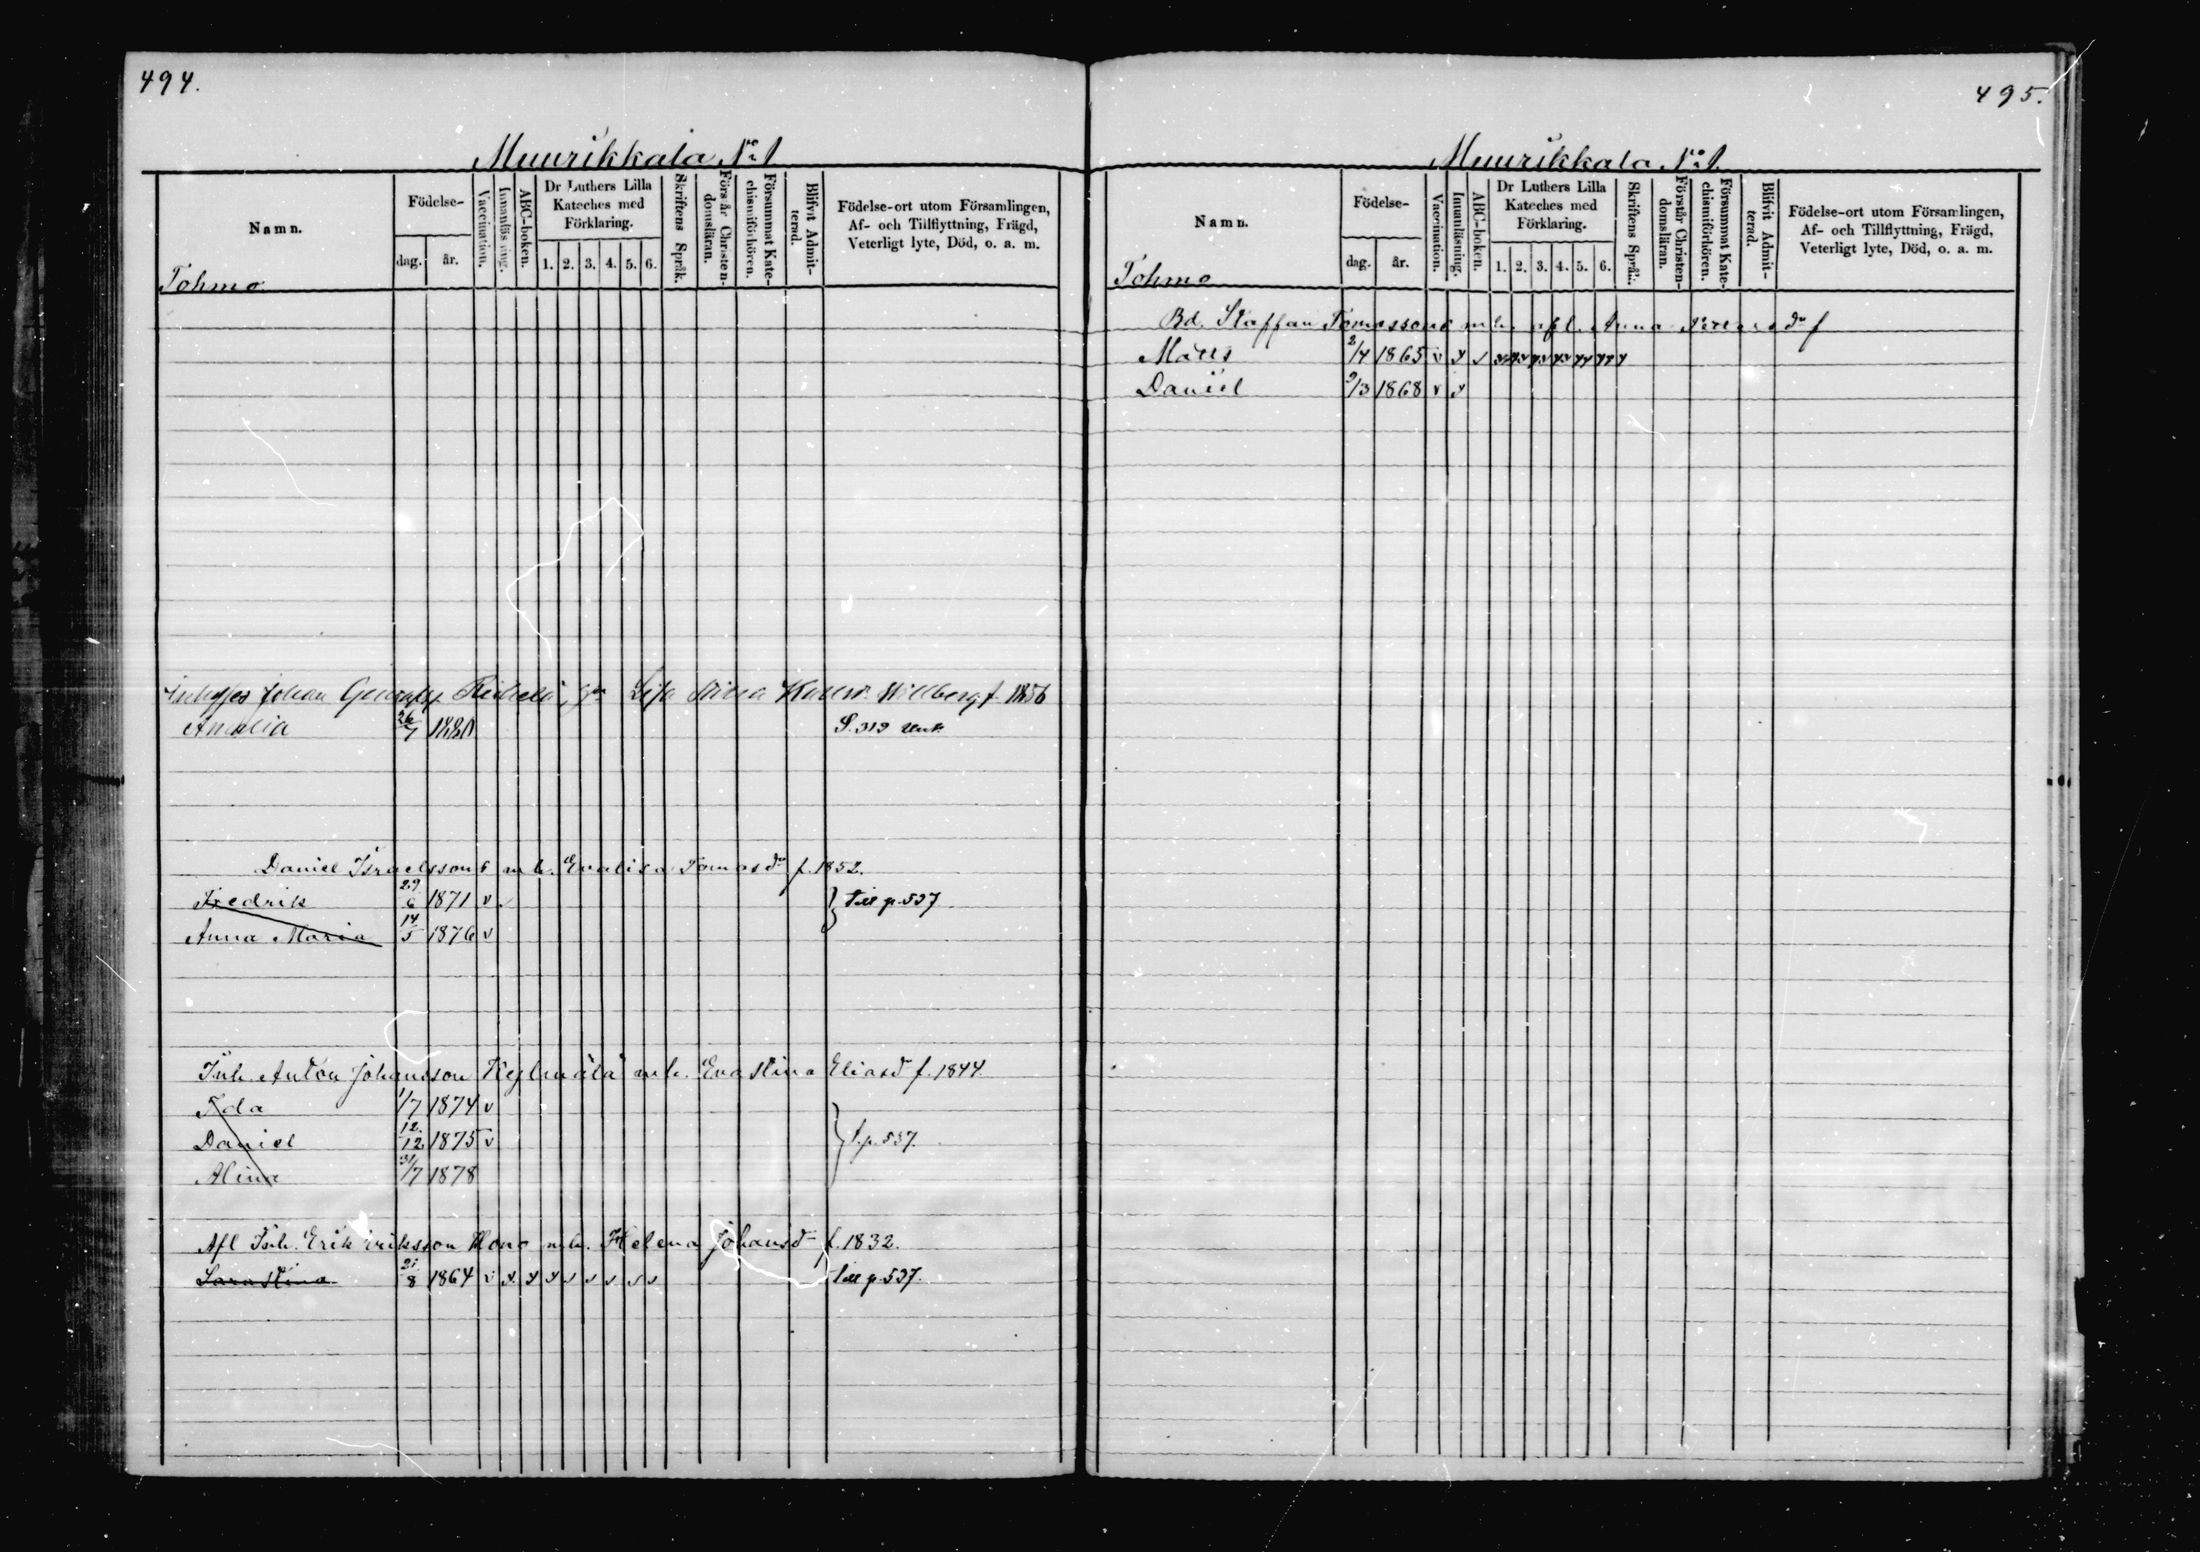 494.
Muurikkala No 1
Namn.
Födelse-
dag. år.
Vaccination.
Innanläsning.
ABC-boken.
Dr Luthers Lilla Kateches med Förklaring.
1. 2. 3. 4. 5. 6.
Skriftens Språk.
Förstår Christendomsläran.
Försummat Katechismiförhören.
Blifvit Admitterad.
Födelse-ort utom Församlingen, Af- och Tillflyttning, Frägd, Veterligt lyte, Död, o. a. m.
Tohmo
Johan Lisa Stina Willberg f. 1856
Amalia 26/7 1880 S. 313
Daniel Israelssons m h. Evalisa Tomasdr f. 1852.
Fredrik 29/6 1871 v Till p. 537
Anna Maria 14/5 1876 v
Inh. Anton Johansson m h. Eva Stina Eliasdr f. 1844.
Ida 1/7 1874 v
Daniel 12/12 1875 v t. p. 537.
Alina 31/7 1878
Afl Inh. Erik Eriksson m h. Helena Johansdr f. 1832.
Sara Stina 21/8 1864 v Till p. 537.
495.
Muurikkala No 1.
Namn.
Födelse-
dag. år.
Vaccination.
Innanläsning.
ABC-boken.
Dr Luthers Lilla Kateches med Förklaring.
1. 2. 3. 4. 5. 6.
Skriftens Språk.
Förstår Christendomsläran.
Försummat Katechismiförhören.
Blifvit Admitterad.
Födelse-ort utom Församlingen, Af- och Tillflyttning, Frägd, Veterligt lyte, Död, o. a. m.
Tohmo
Bd. Staffan Tomassons m h. afl. Anna f
Matts 2/4 1865 v
Daniel 9/3 1868 v